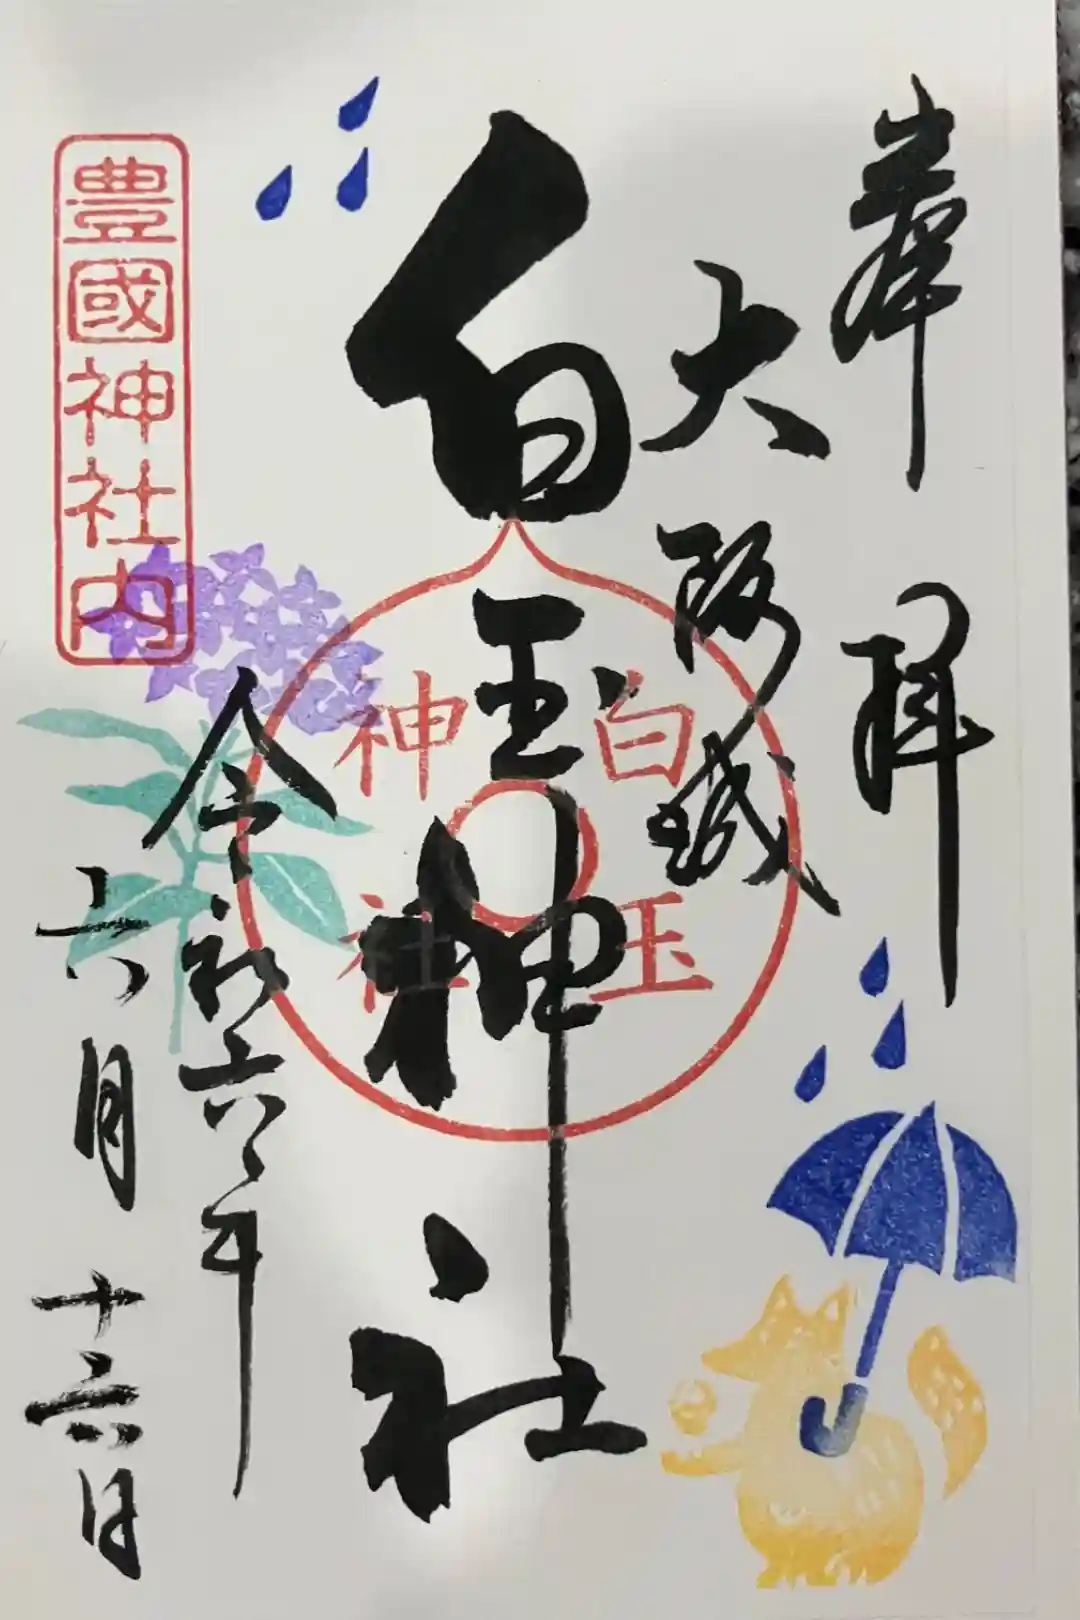 奉拝
大阪城
白玉神社
白玉
神社
令和六年
六月十六日
豊國神社内